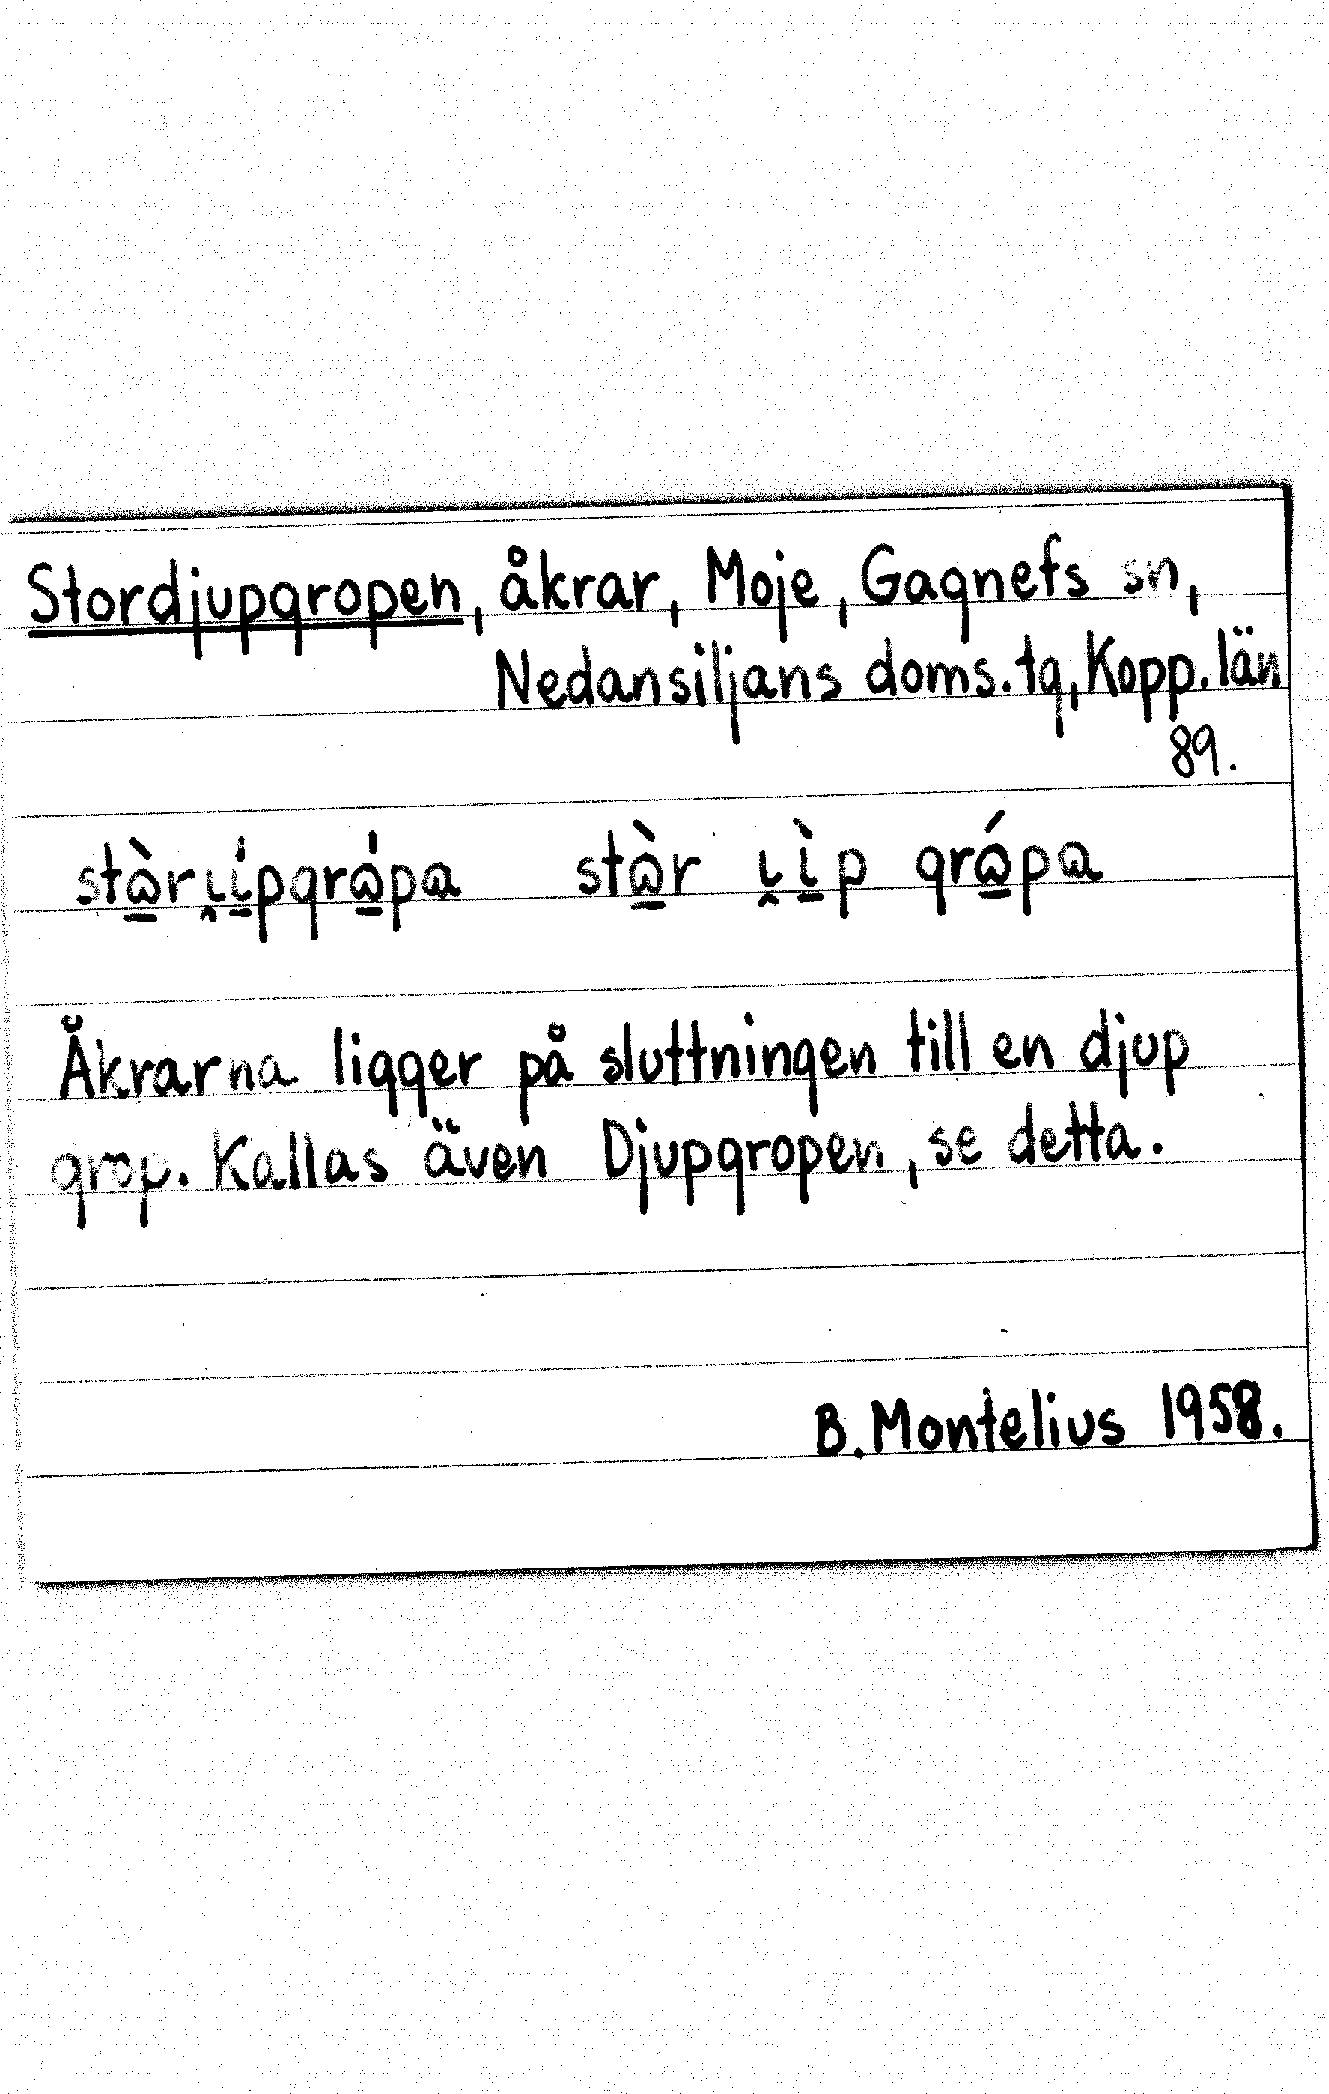 Stordjupgropen, åkrar, Moje, Gagnefs sn,
Nedansiljans doms. tg, Kopp. län
89.
Åkrarna ligger på sluttningen till en djup
grop. Kallas även Djupgropen, se detta.
B. Montelius 1958.